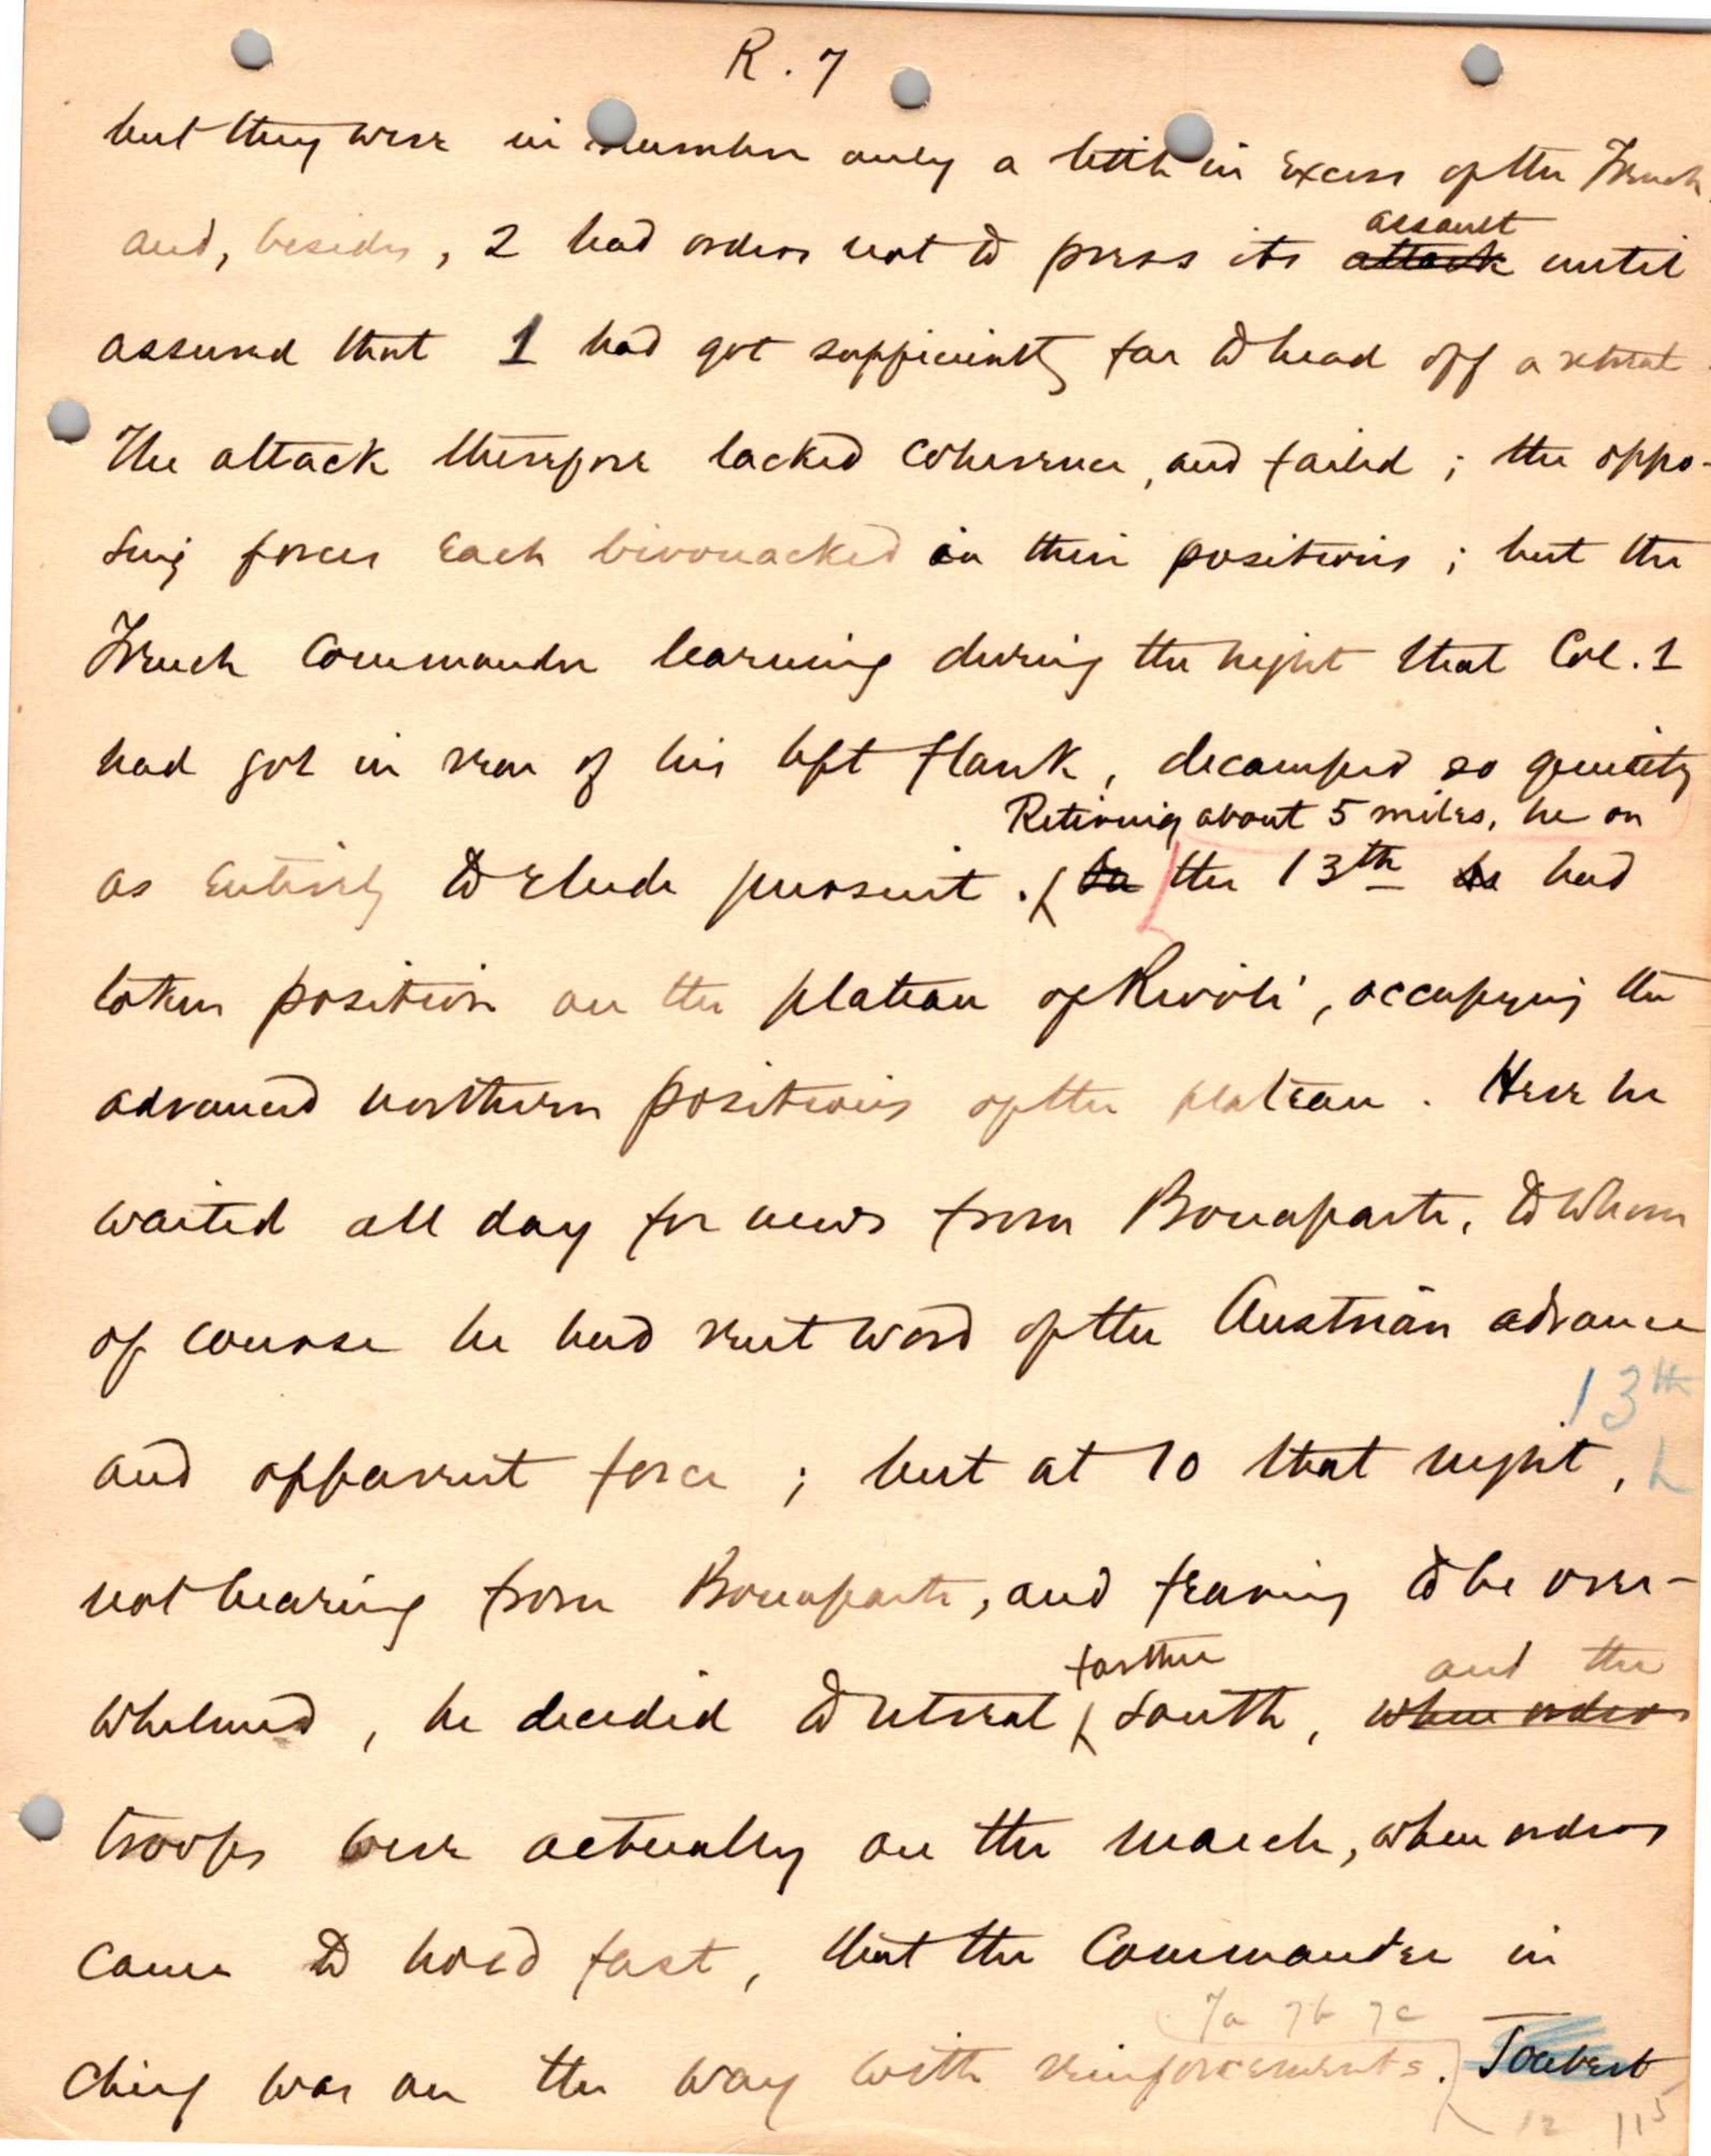 R. 7
but they were in number only a little in excess of the French
and, besides, 2 had orders not to press its attack until
assault
assured that 1 had got sufficiently far to head off a retreat.
The attack therefore lacked coherence, and failed; the oppo-
sing forces each bivouacked in their positions; but the
French Commander learning during the night that Col. 1
had got in rear of his left flank, decamped so quietly
Retiring about 5 miles, he on
as entirely to elude pursuit. the 13th he had
taken position on the plateau of Rivoli, occupying the
advanced northern positions of the plateau. Here he
waited all day for news from Bonaparte, to whom
of course he had sent word of the Austrian advance
13th
and apparent force; but at 10 that night,
not hearing from Bonaparte, and fearing to be over-
farther and the
whelmed, he decided to retreat south, when orders
troops were actually on the march, when orders
came to hold fast, that the Commander in
7a 7b 7c
chief was on the way with reinforcements. Joubert
12 115